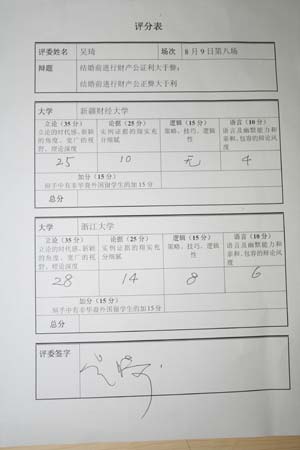 评分表
评委姓名 吴琦 场次 8月9日第八场
辩题 结婚前进行财产公证利大于弊;
结婚前进行财产公正弊大于利
大学 新疆财经大学
立论(35分) 论据(25分) 逻辑(15分) 语言(10分)
立论的时代感、新颖的角度、宽广的视野、辩论深度 实例证据的翔实充分细腻 策略、技巧、逻辑性 语言及幽默能力和亲和、包容的辩论风度
25 10 4
加分(15分)
辩手中有非华裔外国留学生的加15分
总分
大学 浙江大学
立论(35分) 论据(25分) 逻辑(15分) 语言(10分)
立论的时代感、新颖的角度、宽广的视野、辩论深度 实例证据的翔实充分细腻 策略、技巧、逻辑性 语言及幽默能力和亲和、包容的辩论风度
28 14 8 6
加分(15分)
辩手中有非华裔外国留学生的加15分
总分
评委签字